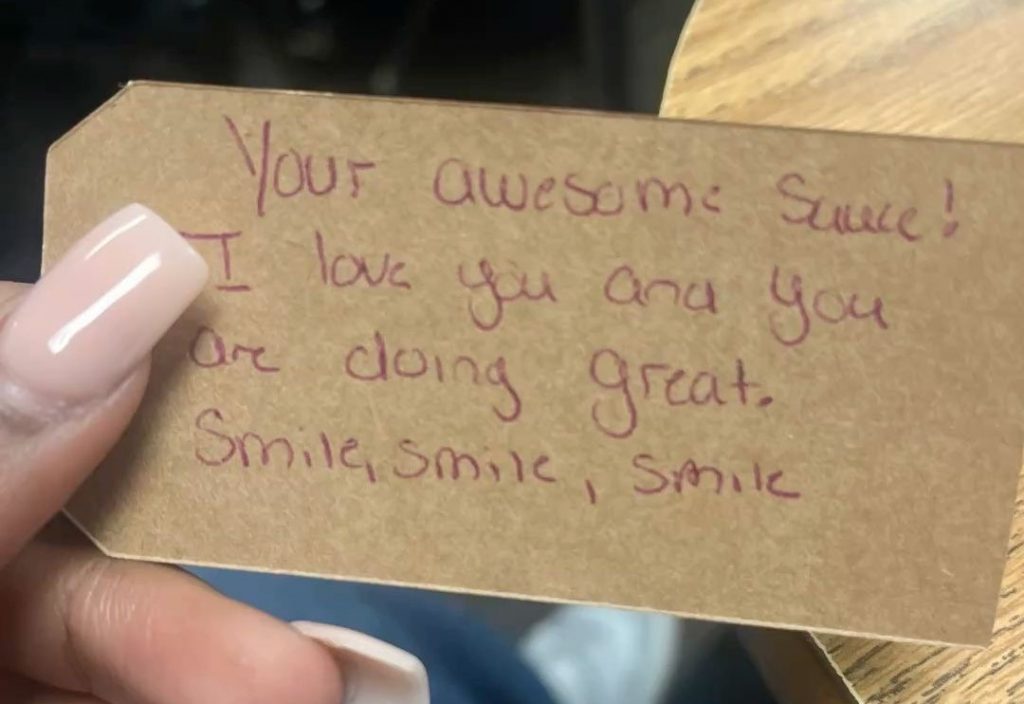 Your awesome Sauce!
I love you and you
are doing great.
Smile, smile, smile